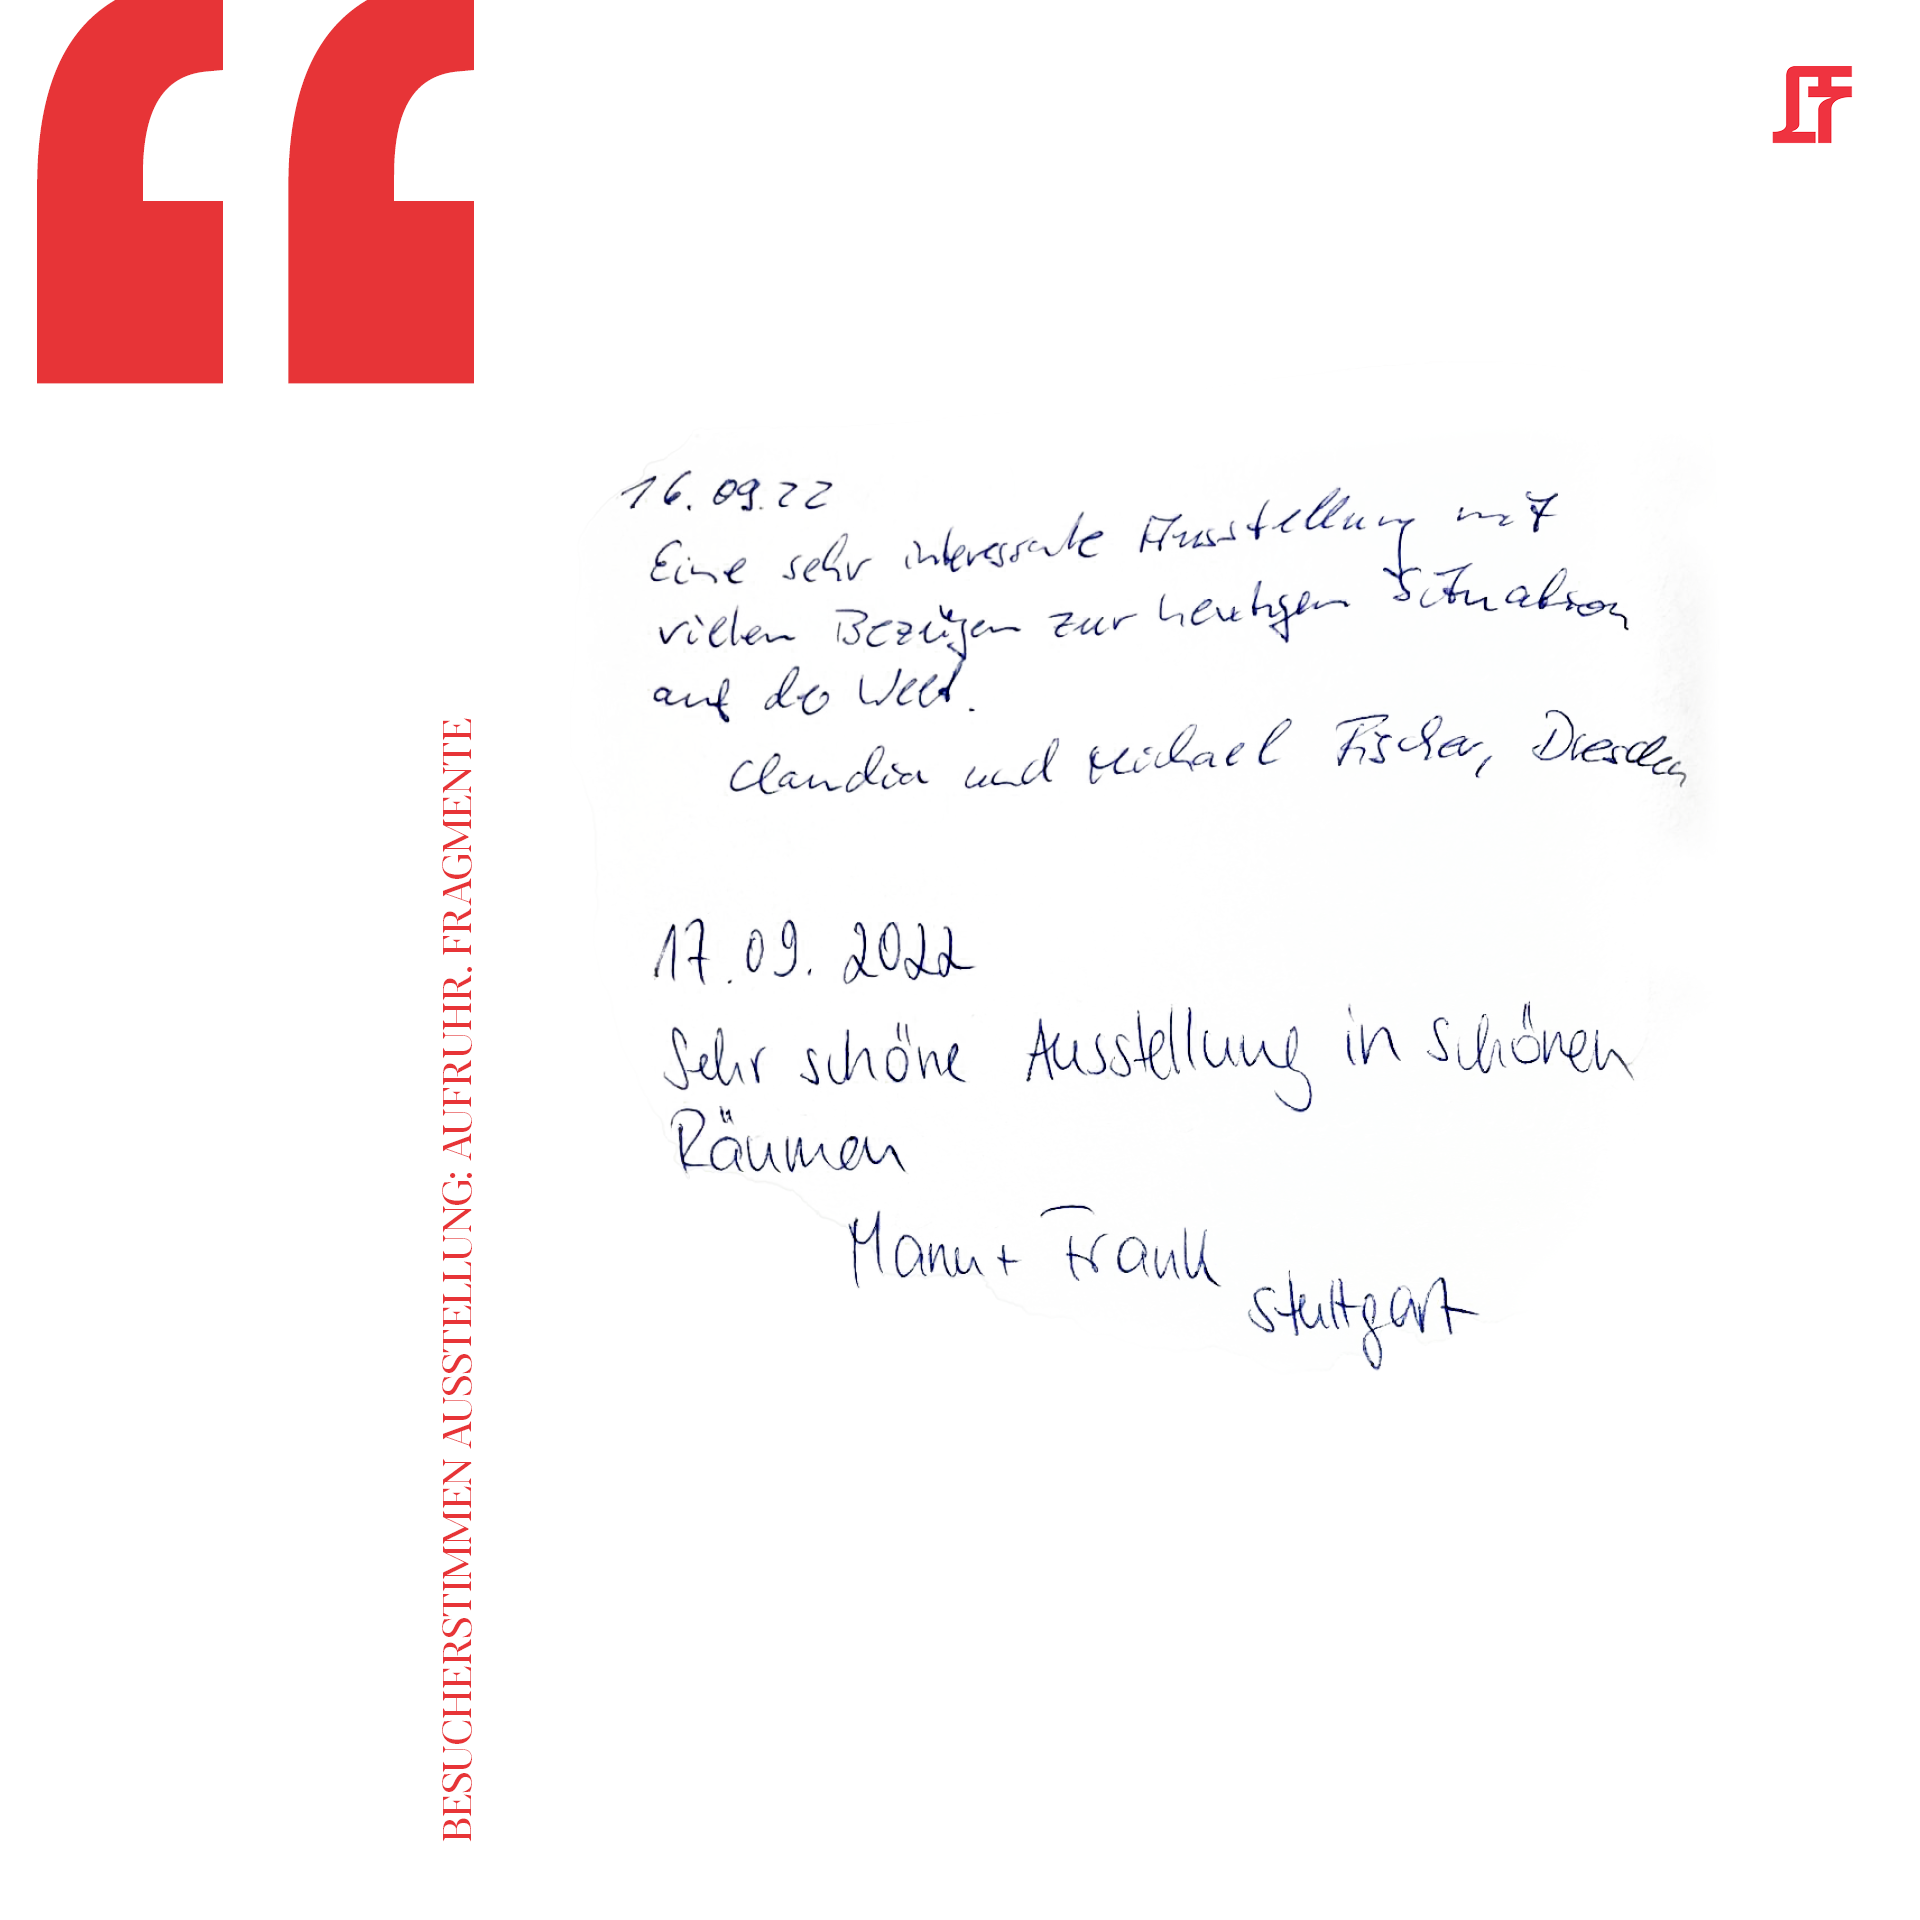 16.09.22
Eine sehr interessante Ausstellung mit
vielen Bezügen zur heutigen Situation
auf der Welt.
Claudia und Michael Fischer, Dresden
17.09.2022
Sehr schöne Ausstellung in schönen
Räumen
Manu + Frank
Stuttgart
BESUCHERSTIMMEN AUSSTELLUNG: AUFRUHR. FRAGMENTE